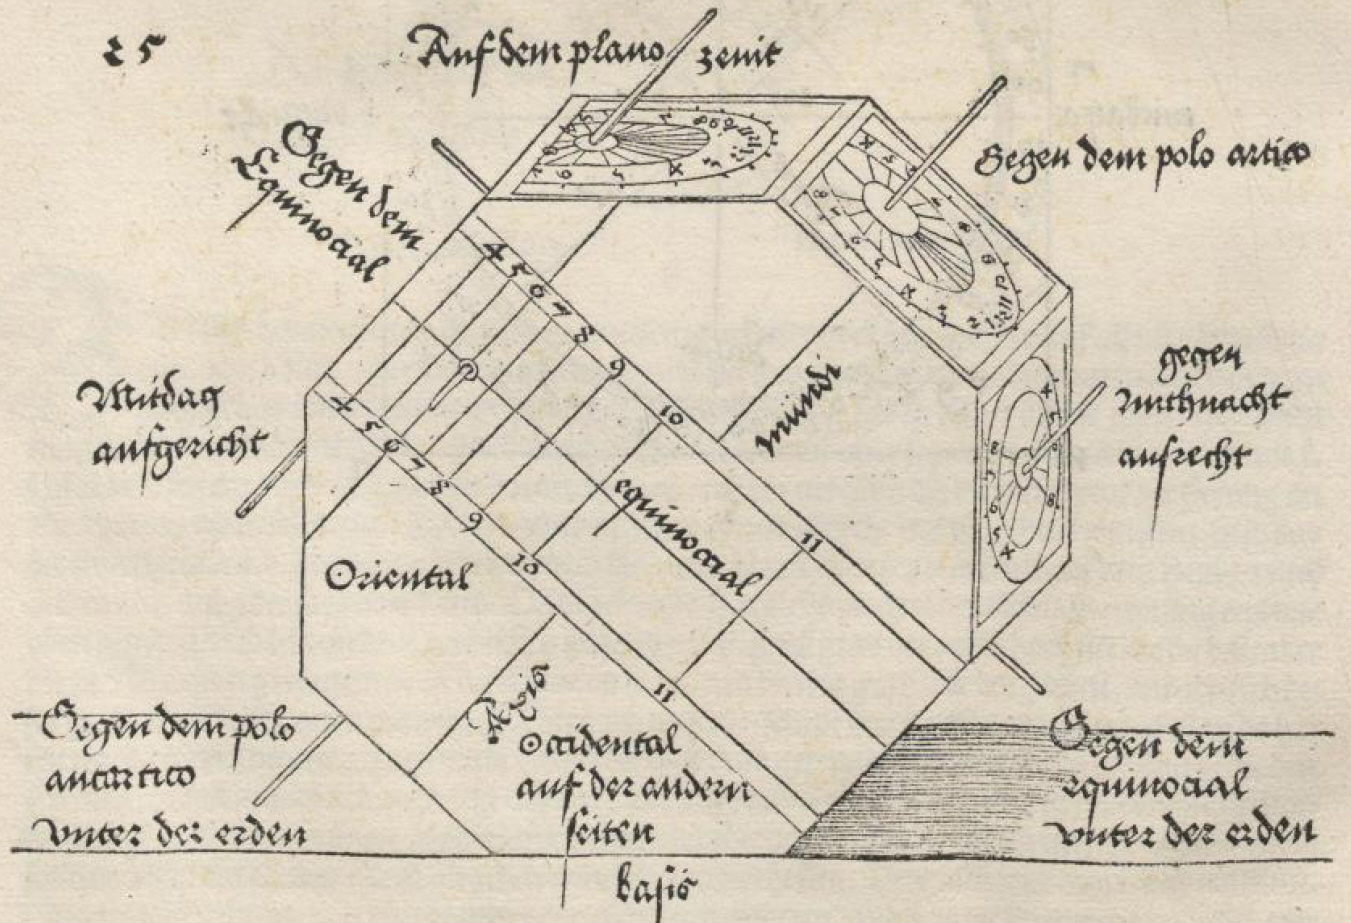 25
Auf dem plano zenit
Gegen dem
Equinocial
Gegen dem polo artico
Mitdag
aufgericht
gegen
aufrecht
mundi
equinoctial
Oriental
4 5 6 7 8 9 10 11
4 5 6 7 8 9 10 11
Axis
Occidental
auf der andern
seiten
Gegen dem polo
antartico
vnter der erden
Gegen dem
equinocial
vnter der erden
basis